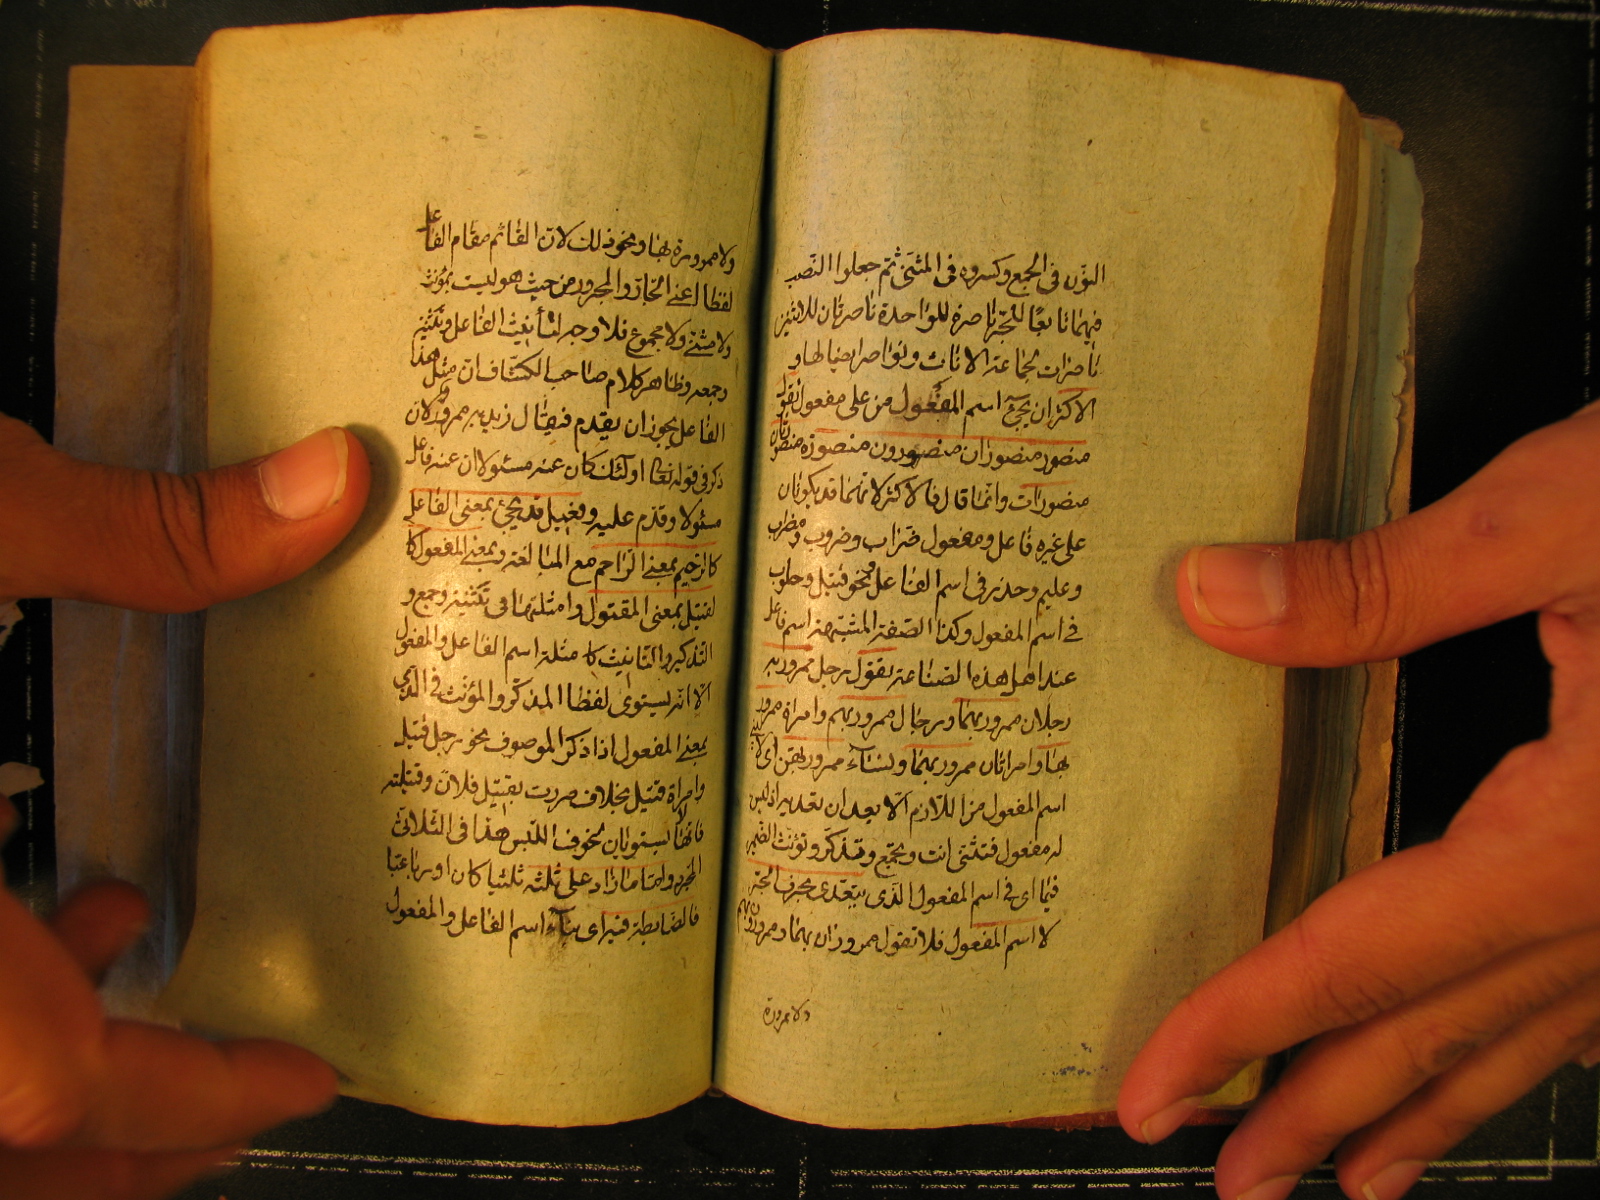 النون فى الجمع وكسروه فى المثنى ثم جعلوا النصب
فيهما تابعًا للجر ناصرة للواحدة ناصرتان للاثنين
ناصرات لجماعة الاناث ونواصر ايضا لها و
الاكثر ان يجئ اسم المفعول من على مفعول تقول
منصور منصوران منصورون منصورة منصورتان
منصورات وانما قال فالاكثر لانهما قد يكونان
على غير فاعل ومفعول ضراب وضروب ومضراب
وعليم وحذر فى اسم الفاعل ونحو قتيل وحلوب
فى اسم المفعول وكذا الصفة المشبهة اسم فاعل
عند اهل هذه الصناعة تقول رجل ممرور به
رجلان ممرور بهما ورجال ممرور بهم وامراة ممرور
بها وامراتان ممرور بهما ونساء ممرور بهن اى لا
اسم المفعول من اللازم الا بعد ان تعديه اذ ليس
له مفعول فتثنى انت وتجمع وتذكر وتؤنث الضمير
فيما اى فى اسم المفعول الذى يتعدى بحرف الجر
لا اسم المفعول فلا تقول ممروران بهما وممرورون بهم
ولا ممرورة
ولا ممرورة بها ونحو ذلك لان القائم مقام الفاعل
لفظا اعنى الجار والمجرور من حيث هو ليست بمؤنث
ولا مثنى ولا مجموع فلا وجه لتأنيث الفاعل وتثنيته
وجمعه وظاهر كلام صاحب الكشاف ان مثل هذا
الفاعل يجوز ان يقدم فيقال زيد به ممرور لان
ذكر فى قوله تعا اولئك كان عنه مسئولا ان عنه فاعل
مسئولا وقدم عليه وفعيل قد يجئ بمعنى الفاعل
كالرحيم بمعنى الراحم مع المبالغة وبمعنى المفعول كا
لقتيل بمعنى المقتول وامثلتهما فى تثنية وجمع و
التذكير والتانيث كامثلة اسم الفاعل والمفعول
الا انه يستوى لفظا المذكر والمؤنث فى الذى
بمعنى المفعول اذا ذكر الموصوف نحو رجل قتيل
وامراة قتيل بخلاف مررت بقتيل فلان وقتيلته
فانهما لا يستويان لخوف اللبس هذا فى الثلاثى
المجرد واما ما زاد على ثلثة ثلثيا كان او رباعيا
فالضابطة فيه اى بناء اسم الفاعل والمفعول